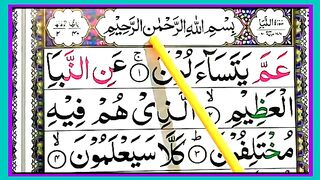 سُوْرَةُ النَّبَإِ
بِسْمِ اللّٰهِ الرَّحْمٰنِ الرَّحِيْمِ
عَمَّ يَتَسَآءَلُوْنَ ۚ﴿۱﴾ عَنِ النَّبَاِ
الْعَظِيْمِ ۙ﴿۲﴾ الَّذِيْ هُمْ فِيْهِ
مُخْتَلِفُوْنَ ؕ﴿۳﴾ كَلَّا سَيَعْلَمُوْنَ ۙ﴿۴﴾